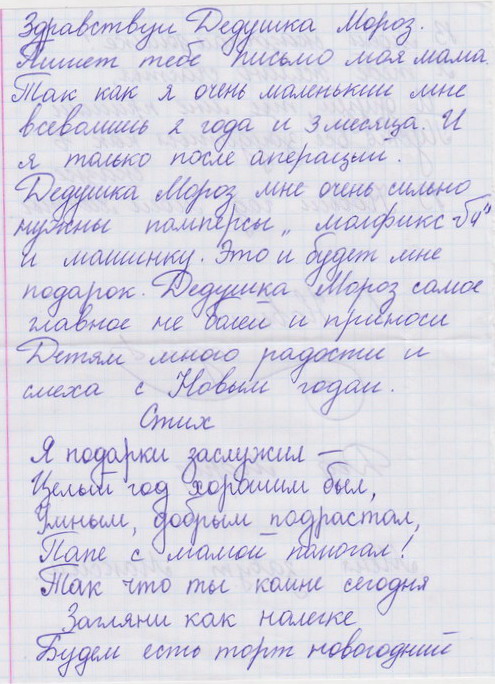 Здравствуй Дедушка Мороз.
Пишет тебе письмо моя мама.
Так как я очень маленький мне
всеволишь 2 года и 3 месяца. И
я только после аперации.
Дедушка Мороз мне очень сильно
нужны памперсы „молфикс-б4"
и машинку. Это и будет мне
подарок. Дедушка Мороз самое
главное не болей и приноси
Детям много радости и
смеха с Новым годам.
Стих
Я подарки заслужил —
Целый год хорошим был,
Умным, добрым подрастал,
Папе с мамой помогал!
Так что ты комне сегодня
Загляни как налегке
Будем есть торт новогодний